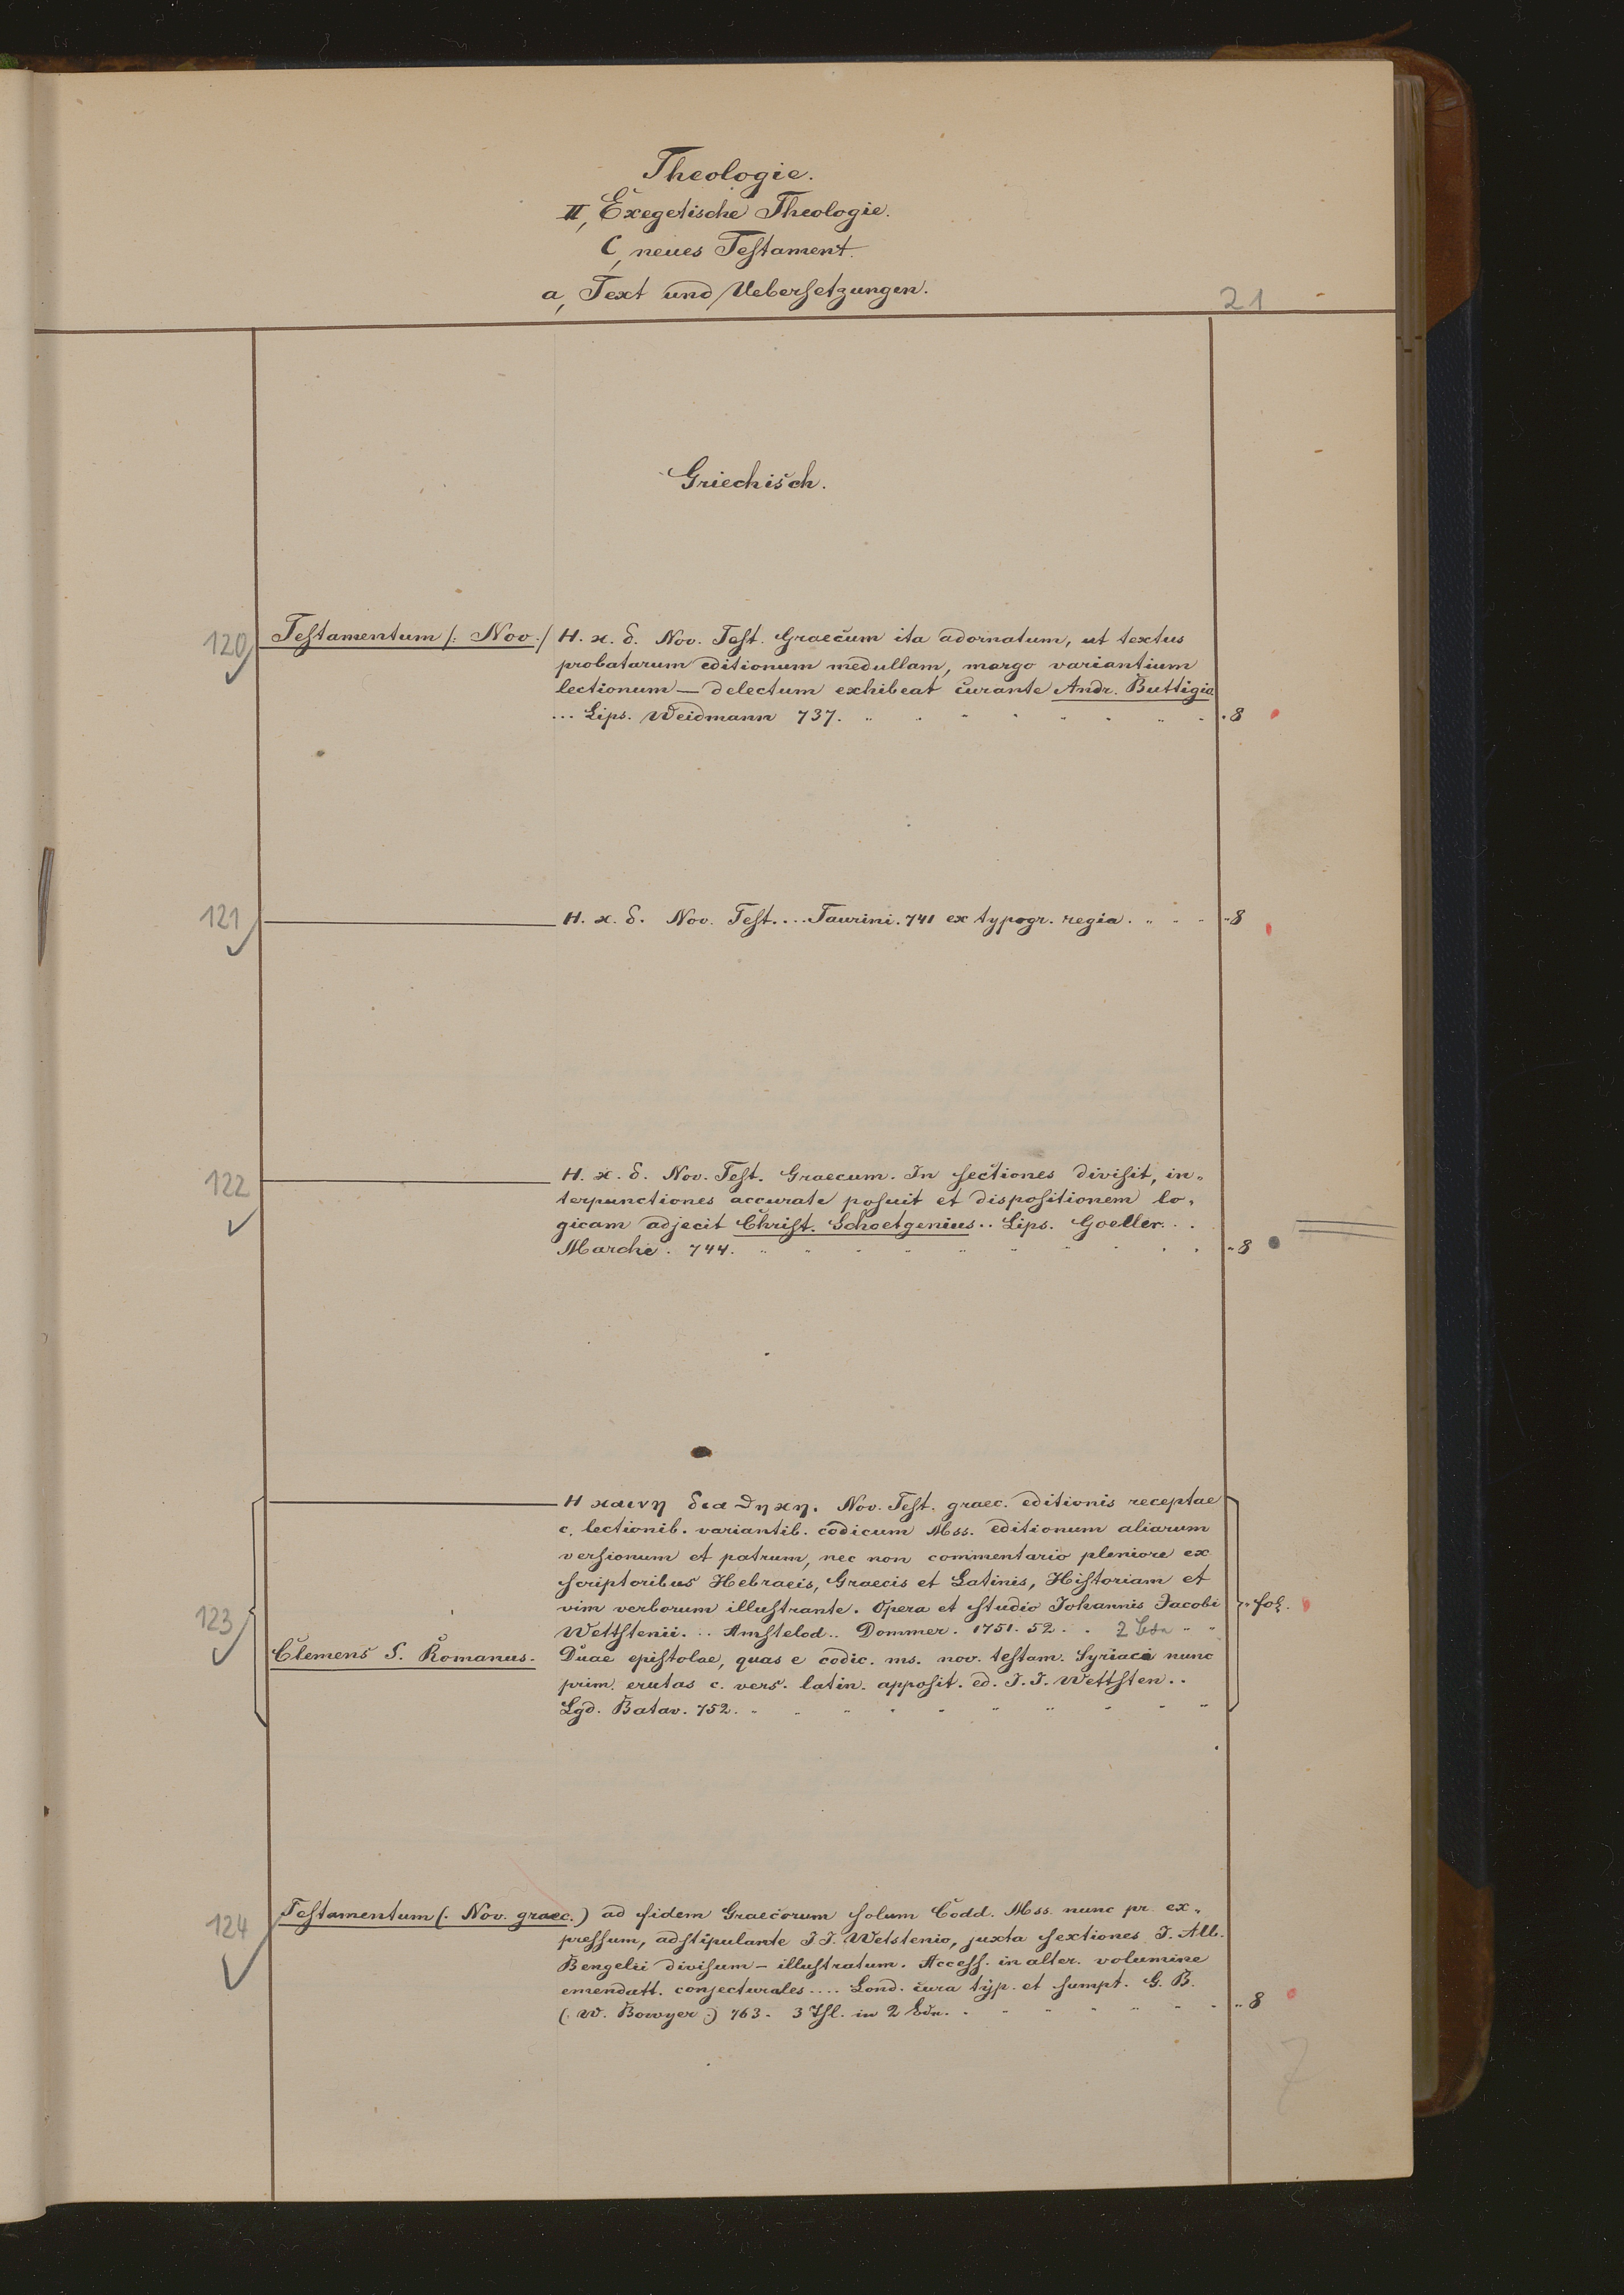 Theologie.
II, Exegetische Theologie.
C, neues Testament.
a, Text und Uebersetzungen.
21
Griechisch.
120 Testamentum /: Nov./ H. κ. δ. Nov. Test. Graecum ita adornatum, ut textus
probatarum editionum medullam, margo variantium
lectionum — delectum exhibeat curante Andr. Buttigio
... Lips. Weidmann 737. 8
121 H. κ. δ. Nov. Test.... Taurini. 741 ex typogr. regia. 8
122 H. κ. δ. Nov. Test. Graecum. In sectiones divisit, in-
terpunctiones accurate posuit et dispositionem lo-
gicam adjecit Christ. Schoetgenius.. Lips. Goeller...
Marche. 744. 8
H καινη δια θηκη. Nov. Test. graec. editionis receptae
c. lectionib. variantib. codicum Mss. editionum aliarum
versionum et patrum, nec non commentario pleniore ex
scriptoribus Hebraeis, Graecis et Latinis, Historiam et
123 vim verborum illustrante. Opera et studio Johannis Jacobi fol.
Wettstenii... Amstelod.. Dommer. 1751. 52. . 2 Bde
Clemens S. Romanus. Duae epistolae, quas e codic. ms. nov. testam. Syriaci nunc
prim. erutas c. vers. latin. apposit. ed. J. J. Wettsten..
Lgd. Batav. 752.
124 Testamentum (. Nov. graec.) ad fidem Graecorum solum Codd. Mss. nunc pr. ex-
pressum, adstipulante J J. Wetstenio, juxta sextiones J. Alb.
Bengelii divisum – illustratum. Access. in alter. volumine
emendatt. conjecturales.... Lond. cura typ. et sumpt. G. B.
(. W. Bowyer.) 763. 3 Thl. in 2 Bdn. 8
7